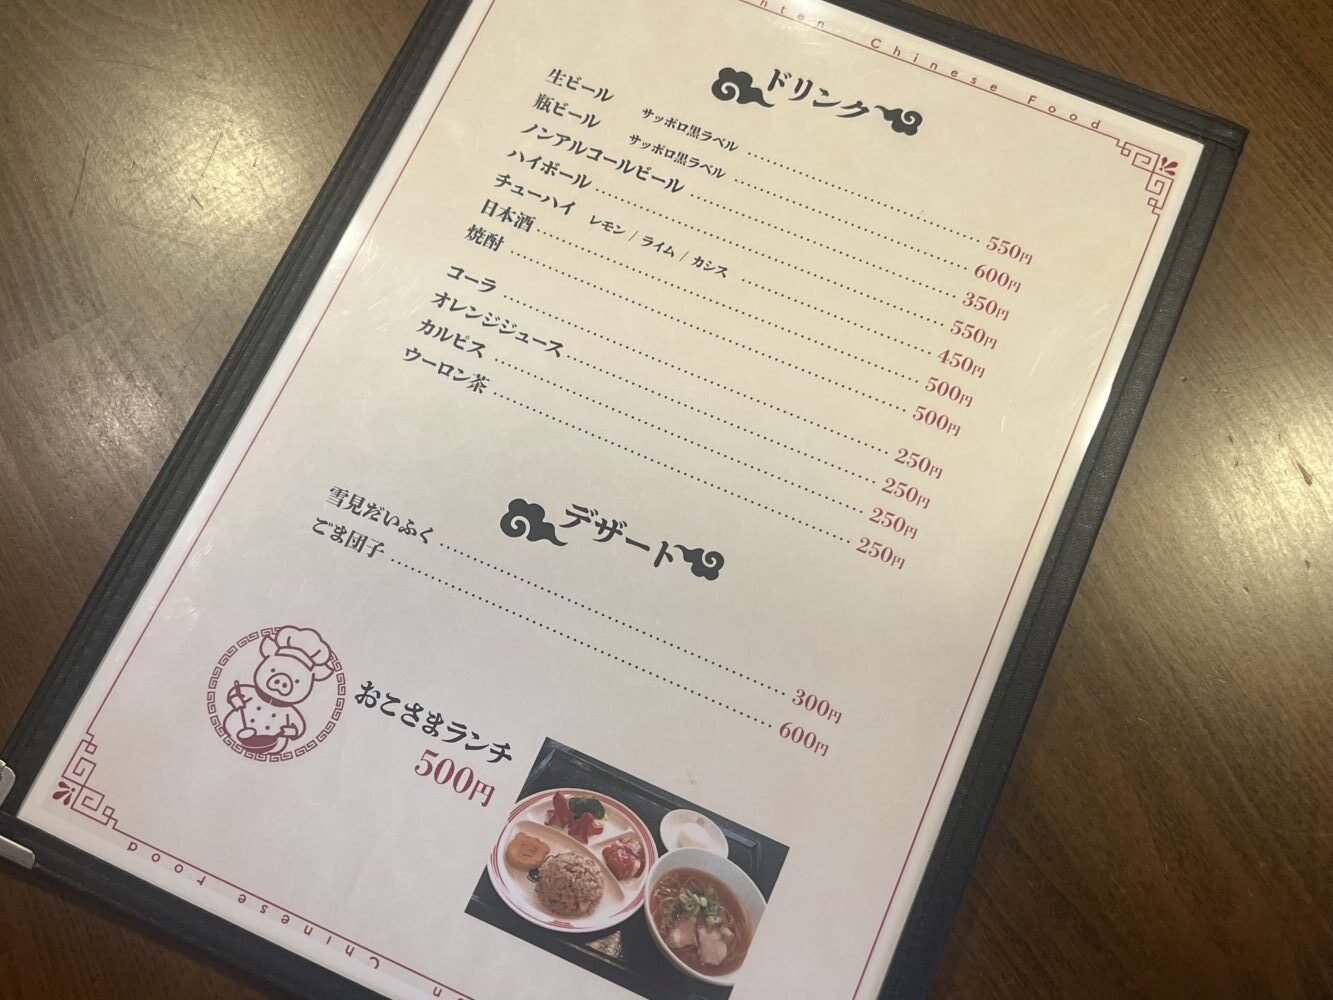 nten Chinese Food
ドリンク
生ビール サッポロ黒ラベル 550円
瓶ビール サッポロ黒ラベル 600円
ノンアルコールビール 350円
ハイボール 550円
チューハイ レモン / ライム / カシス 450円
日本酒 500円
焼酎 500円
コーラ 250円
オレンジジュース 250円
カルピス 250円
ウーロン茶 250円
デザート
雪見だいふく 300円
ごま団子 600円
おこさまランチ
500円
n Chinese Food